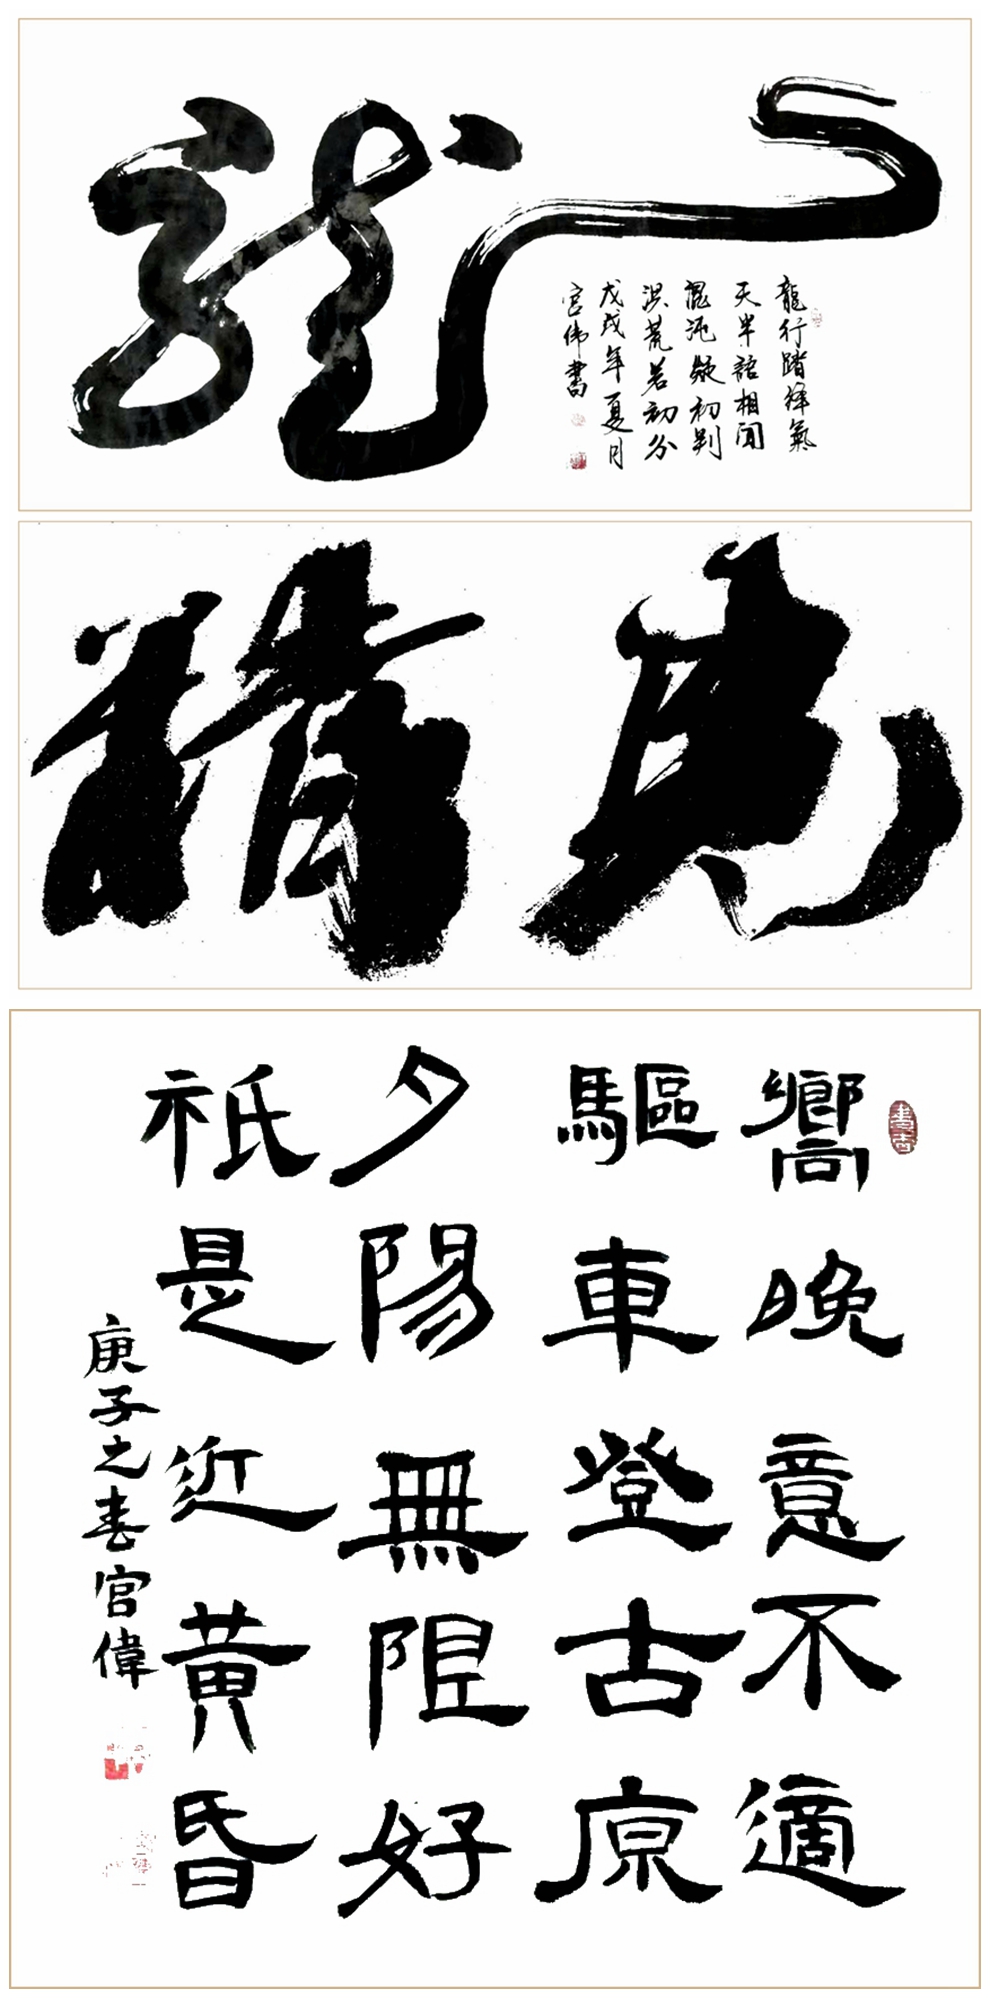 龍
龍行踏絳氣
天半語相聞
混沌疑初判
洪荒若初分
戊戌年夏月
宫伟書
精
嚮晚意不適
驅車登古原
夕陽無限好
祇是近黃昏
庚子之春宮偉